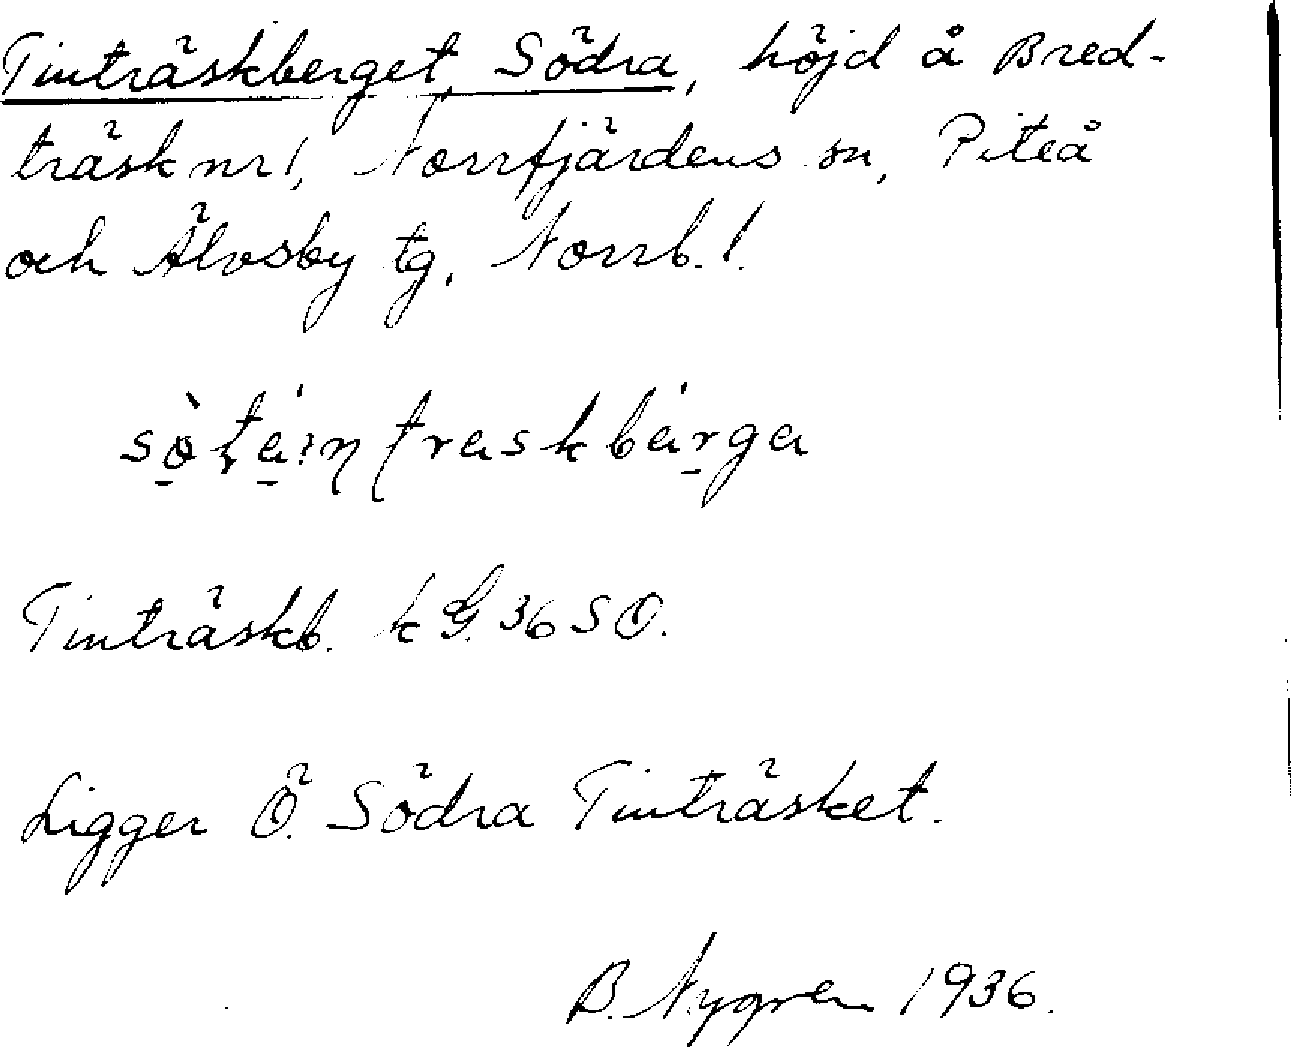 Tinträskberget, Södra, höjd å Bred-
träsk nr 1, Norrfjärdens sn, Piteå
och Älvsby tg, Norrb. l.
Tinträskb. k G. 36 SO.
Ligger Ö. Södra Tinträsket.
B. Nygren 1936.